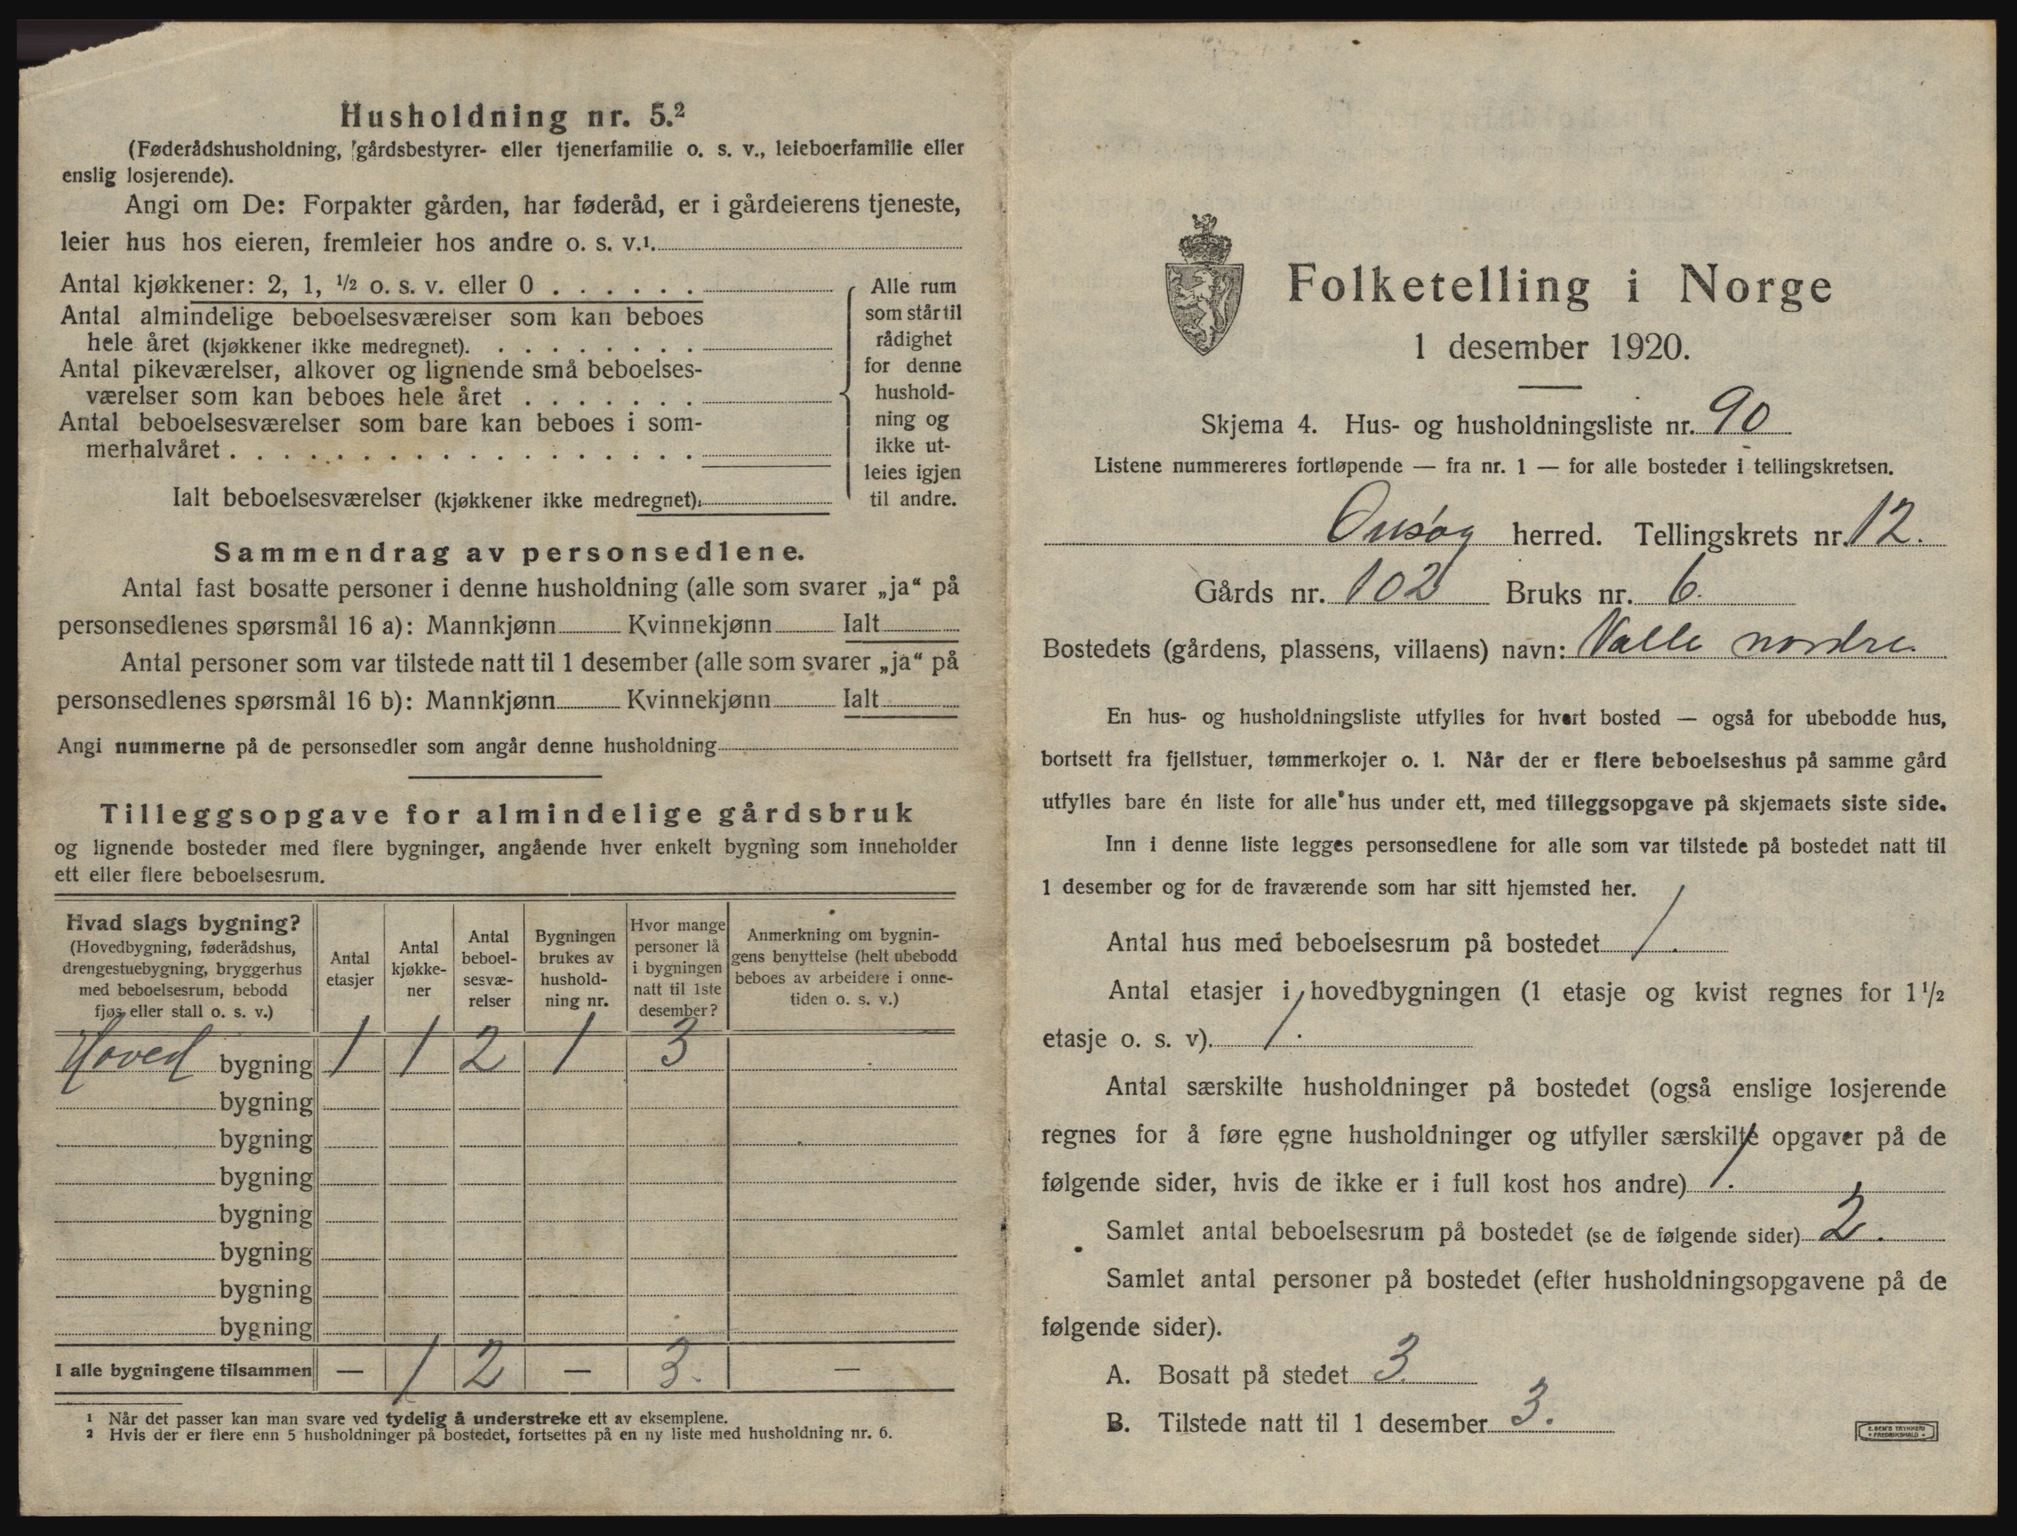 Husholdning nr. 5.²
(Føderådshusholdning, gårdsbestyrer- eller tjenerfamilie o. s. v., leieboerfamilie eller
enslig losjerende).
Angi om De: Forpakter gården, har føderåd, er i gårdeierens tjeneste,
leier hus hos eieren, fremleier hos andre o. s. v.¹
Antal kjøkkener: 2, 1, ½ o. s. v. eller 0
Antal almindelige beboelsesværelser som kan beboes
hele året (kjøkkener ikke medregnet).
Antal pikeværelser, alkover og lignende små beboelses-
værelser som kan beboes hele året
Antal beboelsesværelser som bare kan beboes i som-
merhalvåret
Ialt beboelsesværelser (kjøkkener ikke medregnet)
Alle rum
som står til
rådighet
for denne
hushold-
ning og
ikke ut-
leies igjen
til andre.
Sammendrag av personsedlene.
Antal fast bosatte personer i denne husholdning (alle som svarer „ja“ på
personsedlenes spørsmål 16 a): Mannkjønn Kvinnekjønn Ialt
Antal personer som var tilstede natt til 1 desember (alle som svarer „ja“ på
personsedlenes spørsmål 16 b): Mannkjønn Kvinnekjønn Ialt
Angi nummerne på de personsedler som angår denne husholdning
Tilleggsopgave for almindelige gårdsbruk
og lignende bosteder med flere bygninger, angående hver enkelt bygning som inneholder
ett eller flere beboelsesrum.
Hvad slags bygning?
(Hovedbygning, føderådshus,
drengestuebygning, bryggerhus
med beboelsesrum, bebodd
fjøs eller stall o. s. v.)
Antal
etasjer
Antal
kjøkke-
ner
Antal
beboel-
sesvæ-
relser
Bygningen
brukes av
hushold-
ning nr.
Hvor mange
personer lå
i bygningen
natt til 1ste
desember?
Anmerkning om bygnin-
gens benyttelse (helt ubebodd
beboes av arbeidere i onne-
tiden o. s. v.)
Hoved bygning 1 1 2 1 3
bygning
bygning
bygning
bygning
bygning
bygning
bygning
I alle bygningene tilsammen — 1 2 — 3. —
¹ Når det passer kan man svare ved tydelig å understreke ett av eksemplene.
² Hvis der er flere enn 5 husholdninger på bostedet, fortsettes på en ny liste med husholdning nr. 6.
Folketelling i Norge
1 desember 1920.
Skjema 4. Hus- og husholdningsliste nr. 90
Listene nummereres fortløpende — fra nr. 1 — for alle bosteder i tellingskretsen.
Onsøy herred. Tellingskrets nr. 12.
Gårds nr. 102 Bruks nr. 6.
Bostedets (gårdens, plassens, villaens) navn: Valle nordre.
En hus- og husholdningsliste utfylles for hvert bosted — også for ubebodde hus,
bortsett fra fjellstuer, tømmerkojer o. l. Når der er flere beboelseshus på samme gård
utfylles bare én liste for alle hus under ett, med tilleggsopgave på skjemaets siste side.
Inn i denne liste legges personsedlene for alle som var tilstede på bostedet natt til
1 desember og for de fraværende som har sitt hjemsted her.
Antal hus med beboelsesrum på bostedet 1.
Antal etasjer i hovedbygningen (1 etasje og kvist regnes for 1½
etasje o. s. v). 1.
Antal særskilte husholdninger på bostedet (også enslige losjerende
regnes for å føre egne husholdninger og utfyller særskilte opgaver på de
følgende sider, hvis de ikke er i full kost hos andre) 1.
Samlet antal beboelsesrum på bostedet (se de følgende sider) 2.
Samlet antal personer på bostedet (efter husholdningsopgavene på de
følgende sider).
A. Bosatt på stedet 3.
B. Tilstede natt til 1 desember 3.